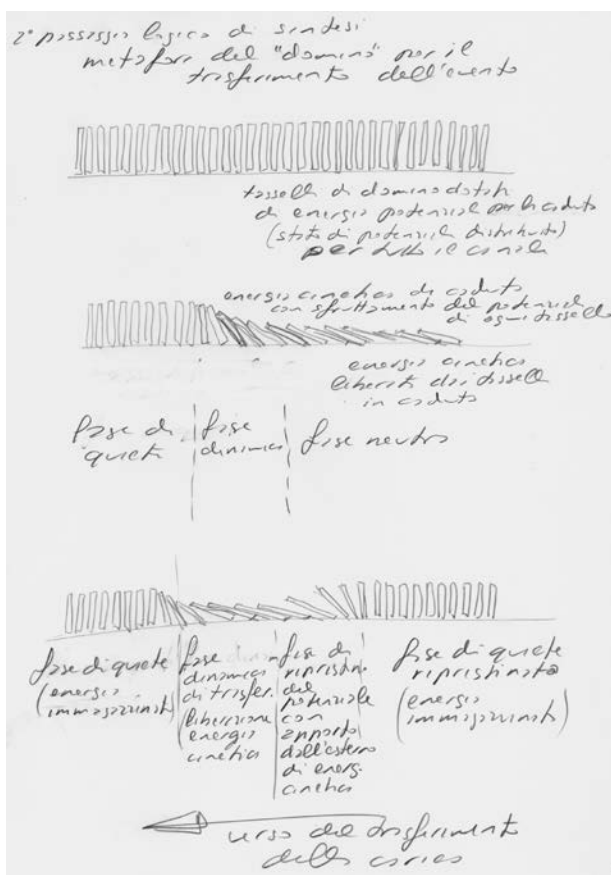 2° passaggio logico di sintesi
metafora del "domino" per il
trasferimento dell'evento
tasselli di domino dotati
di energia potenziale per la caduta
(stato di potenziale distribuito)
per tutto il canale
energia cinetica di caduta
con sfruttamento del potenziale
di ogni tassello
energia cinetica
liberata dai tasselli
in caduta
fase di
quiete
fase
dinamica
fase neutra
fase di quiete
(energia
immagazzinata)
fase
dinamica
di trasfer.
liberazione
energia
cinetica
fase di
ripristino
del
potenziale
con
apporto
dall'esterno
di energ.
cinetica
fase di quiete
ripristinata
(energia
immagazzinata)
verso del trasferimento
della carica